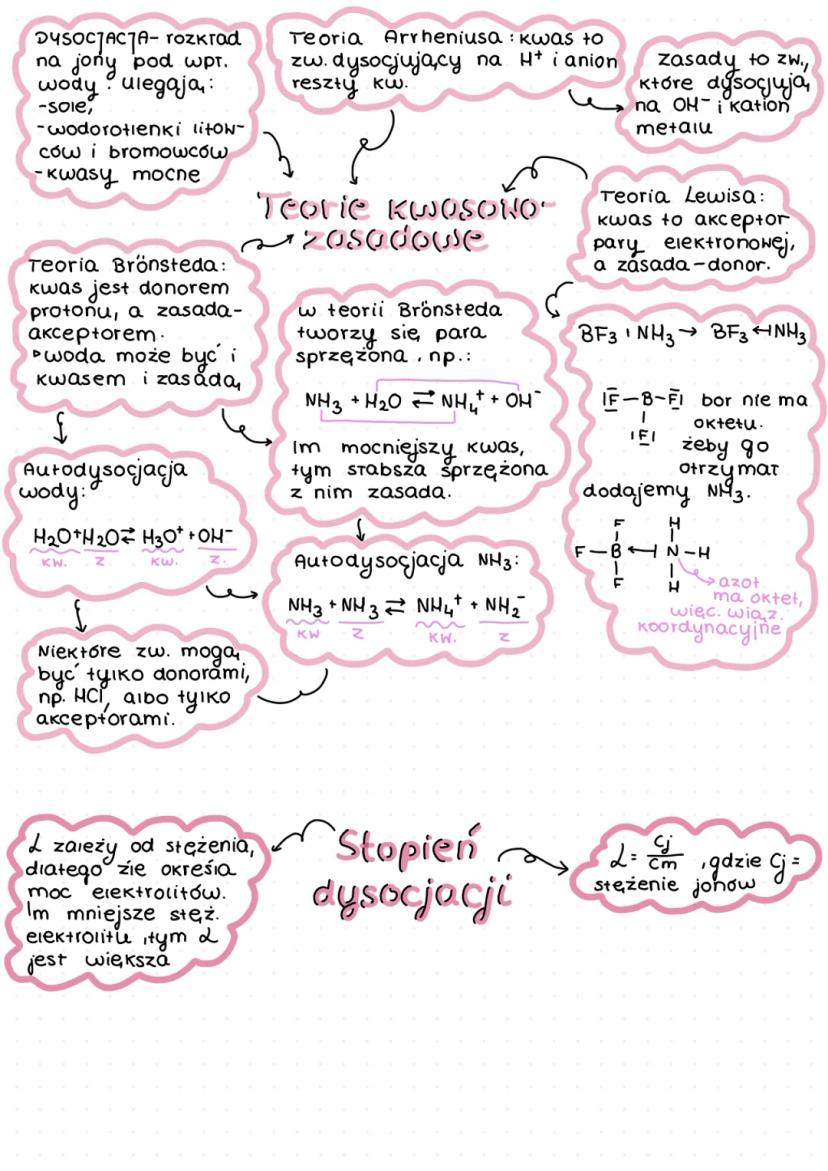 DYSOCJACJA- rozkład
na jony pod wpr.
wody. Ulegają:
-sole,
-wodorotlenki litow-
ców i bromowców
-kwasy mocne
Teoria Arrheniusa: kwas to
zw. dysocjujący na H⁺ i anion
reszty kw.
zasady to zw.,
które dysocjują
na OH⁻ i kation
metalu
Teorie kwasowo-
zasadowe
Teoria Lewisa:
kwas to akceptor
pary elektronowej,
a zasada-donor.
Teoria Brönsteda:
kwas jest donorem
protonu, a zasada-
akceptorem.
▹woda może być i
kwasem i zasadą
w teorii Brönsteda
tworzy się para
sprzężona, np.:
NH₃ + H₂O ⇄ NH₄⁺ + OH⁻
Im mocniejszy kwas,
tym słabsza sprzężona
z nim zasada.
BF₃ i NH₃ → BF₃ ← NH₃
|F̲̅—B—F̲̅| bor nie ma
|
|F̲| oktetu.
żeby go
otrzymał
dodajemy NH₃.
F H
| |
F—B←N—H
| |
F H
azot
ma oktet,
więc. wiąz.
koordynacyjne
Autodysocjacja
wody:
H₂O+H₂O⇄ H₃O⁺ + OH⁻
kw. z. kw. z.
Autodysocjacja NH₃:
NH₃ + NH₃ ⇄ NH₄⁺ + NH₂⁻
kw z kw. z
Niektóre zw. mogą
być tylko donorami,
np. HCl, albo tylko
akceptorami.
Stopień
dysocjacji
α zależy od stężenia,
dlatego źle określa
moc elektrolitów.
Im mniejsze stęż.
elektrolitu, tym α
jest większa
α = Cj/Cm, gdzie Cj =
stężenie jonów